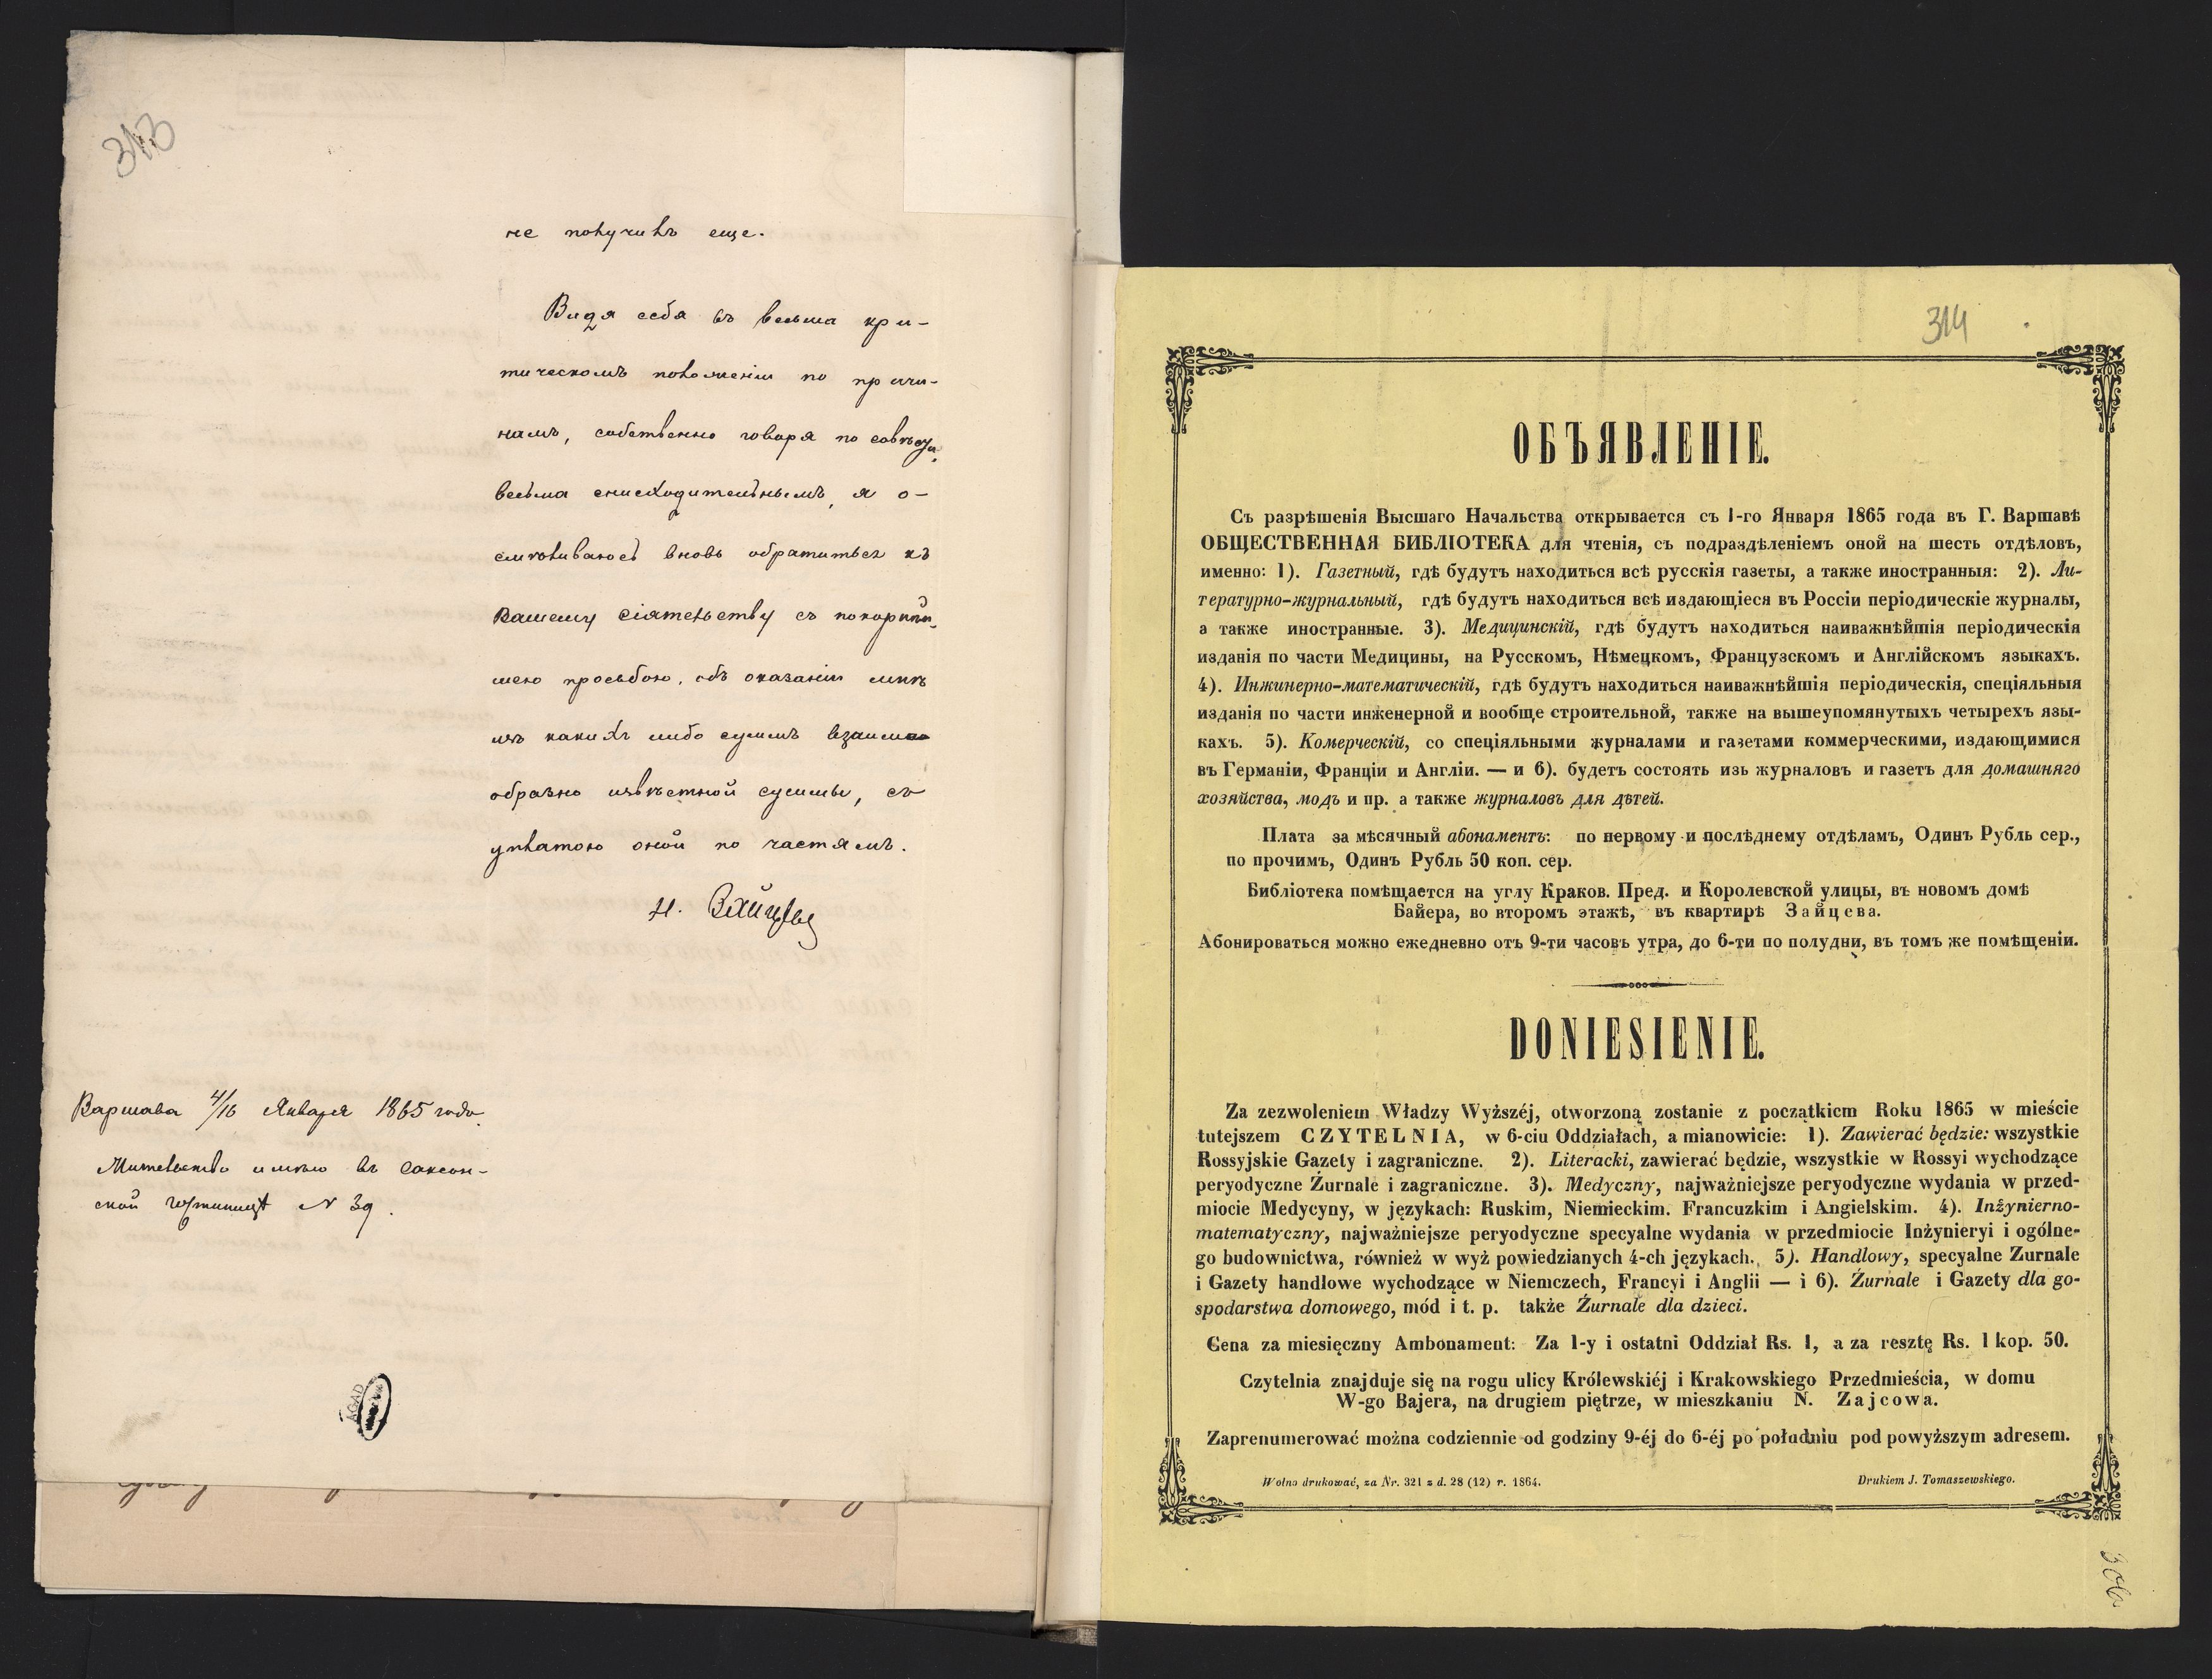 313
не получивъ еще.
Видя себя въ весьма кри-
тическомъ положеніи по причи-
намъ, собственно говоря по совѣсти,
весьма снисходительнымъ, я о-
смѣливаюсь вновь обратиться къ
Вашему Сіятельству съ покорнѣй-
шею просьбою, объ оказаніи мнѣ
изъ какихъ либо суммъ взаимо-
образно извѣстной суммы, съ
уплатою оной по частямъ.
Н. Зайцевъ
Варшава 4/16 Января 1865 года.
Жительство имѣю въ Саксон-
ской гостинницѣ N 39.
AGAD
314
ОБЪЯВЛЕНІЕ.
Съ разрѣшенія Высшаго Начальства открывается съ 1-го Января 1865 года въ Г. Варшавѣ
ОБЩЕСТВЕННАЯ БИБЛІОТЕКА для чтенія, съ подраздѣленіемъ оной на шесть отдѣловъ,
именно: 1). Газетный, гдѣ будутъ находиться всѣ русскія газеты, а также иностранныя: 2). Ли-
тературно-журнальный, гдѣ будутъ находиться всѣ издающіеся въ Россіи періодическіе журналы,
а также иностранные. 3). Медицинскій, гдѣ будутъ находиться наиважнѣйшія періодическія
изданія по части Медицины, на Русскомъ, Нѣмецкомъ, Французскомъ и Англійскомъ языкахъ.
4). Инжинерно-математическій, гдѣ будутъ находиться наиважнѣйшія періодическія, спеціяльныя
изданія по части инженерной и вообще строительной, также на вышеупомянутыхъ четырехъ язы-
кахъ. 5). Комерческій, со спеціяльными журналами и газетами коммерческими, издающимися
въ Германіи, Франціи и Англіи. — и 6). будетъ состоять изъ журналовъ и газетъ для домашняго
хозяйства, модъ и пр. а также журналовъ для дѣтей.
Плата за мѣсячный абонаментъ: по первому и послѣднему отдѣламъ, Одинъ Рубль сер.,
по прочимъ, Одинъ Рубль 50 коп. сер.
Библіотека помѣщается на углу Краков. Пред. и Королевской улицы, въ новомъ домѣ
Байера, во второмъ этажѣ, въ квартирѣ Зайцева.
Абонироваться можно ежедневно отъ 9-ти часовъ утра, до 6-ти по полудни, въ томъ же помѣщеніи.
DONIESIENIE.
Za zezwoleniem Władzy Wyższéj, otworzoną zostanie z początkiem Roku 1865 w mieście
tutejszem CZYTELNIA, w 6-ciu Oddziałach, a mianowicie: 1). Zawierać będzie: wszystkie
Rossyjskie Gazety i zagraniczne. 2). Literacki, zawierać będzie, wszystkie w Rossyi wychodzące
peryodyczne Żurnale i zagraniczne. 3). Medyczny, najważniejsze peryodyczne wydania w przed-
miocie Medycyny, w językach: Ruskim, Niemieckim. Francuzkim i Angielskim. 4). Inżynierno-
matematyczny, najważniejsze peryodyczne specyalne wydania w przedmiocie Inżynieryi i ogólne-
go budownictwa, również w wyż powiedzianych 4-ch językach. 5). Handlowy, specyalne Zurnale
i Gazety handlowe wychodzące w Niemczech, Francyi i Anglii — i 6). Żurnale i Gazety dla go-
spodarstwa domowego, mód i t. p. także Żurnale dla dzieci.
Cena za miesięczny Ambonament: Za 1-y i ostatni Oddział Rs. 1, a za resztę Rs. 1 kop. 50.
Czytelnia znajduje się na rogu ulicy Królewskiéj i Krakowskiego Przedmieścia, w domu
W-go Bajera, na drugiem piętrze, w mieszkaniu N. Zajcowa.
Zaprenumerować można codziennie od godziny 9-éj do 6-éj po południu pod powyższym adresem.
Wolno drukować, za Nr. 321 z d. 28 (12) r. 1864.
Drukiem J. Tomaszewskiego.
306